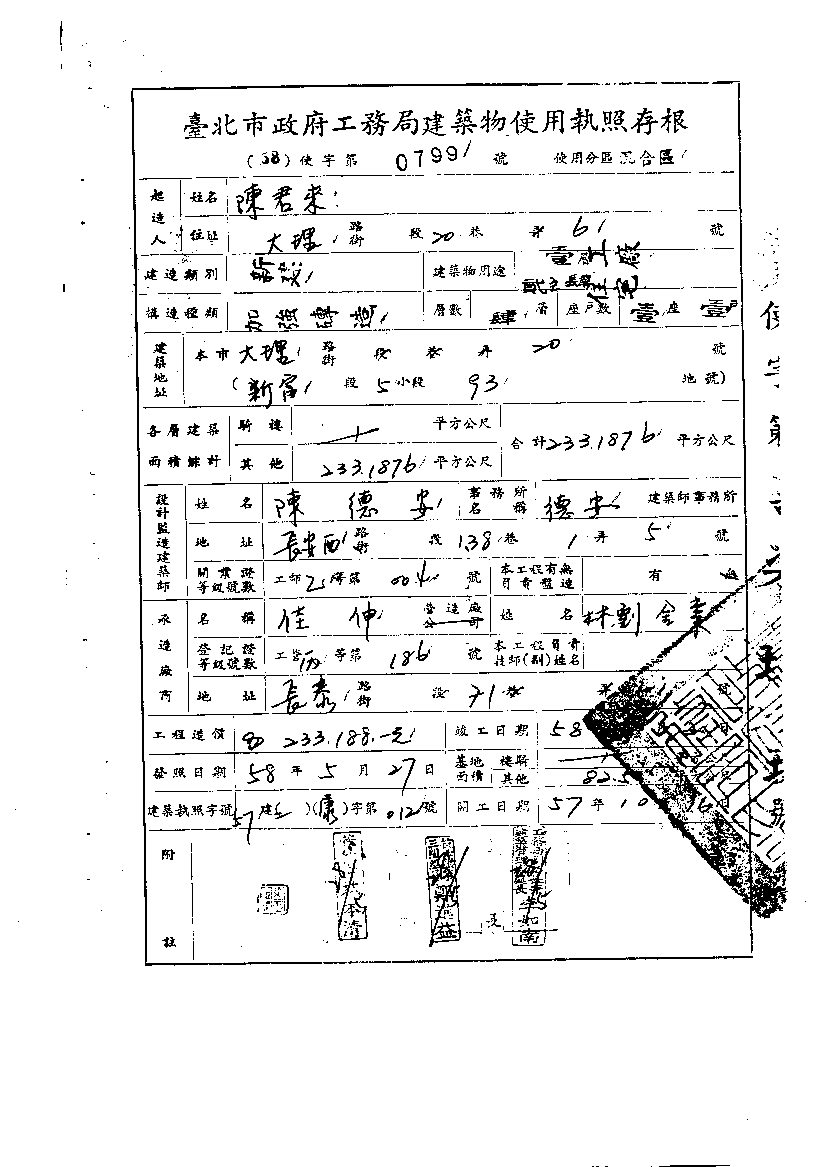 臺北市政府工務局建築物使用執照存根
(58) 使字第 0799 號 使用分區 混合區
起造人 姓名 陳君來
住址 大理 路街 段 20 巷 弄 6 號
建造類別 新設 建築物用途 壹層工廠
貳至肆層住宅
構造種類 加強磚造 層數 肆 層 座戶數 壹 座 壹 戶
建築地址 本市 大理 路街 段 巷 弄 20 號
(新富 段 5 小段 93 地號)
各層建築面積總計 騎樓 平方公尺 合計 233.1876 平方公尺
其他 233.1876 平方公尺
設計監造建築師 姓名 陳德安 事務所名稱 德安 建築師事務所
地址 長安西 路街 段 138 巷 1 弄 5 號
開業證等級號數 工師 乙 等第 號 本工程有無負責監造 有 無
承造廠商 名稱 佳伸 營造廠公司 姓名 林劉金
登記證等級號數 工營 丙 等第 186 號 本工程負責技師(副)姓名
地址 長泰 路街 段 71 巷 號
工程造價 233.188.-元 竣工日期 58
發照日期 58 年 5 月 27 日 基地面積 騎樓
其他 82.5
建築執照字號 57 建 (康) 字第 012 號 開工日期 57 年 10 16 日
附註
長
使字第
號